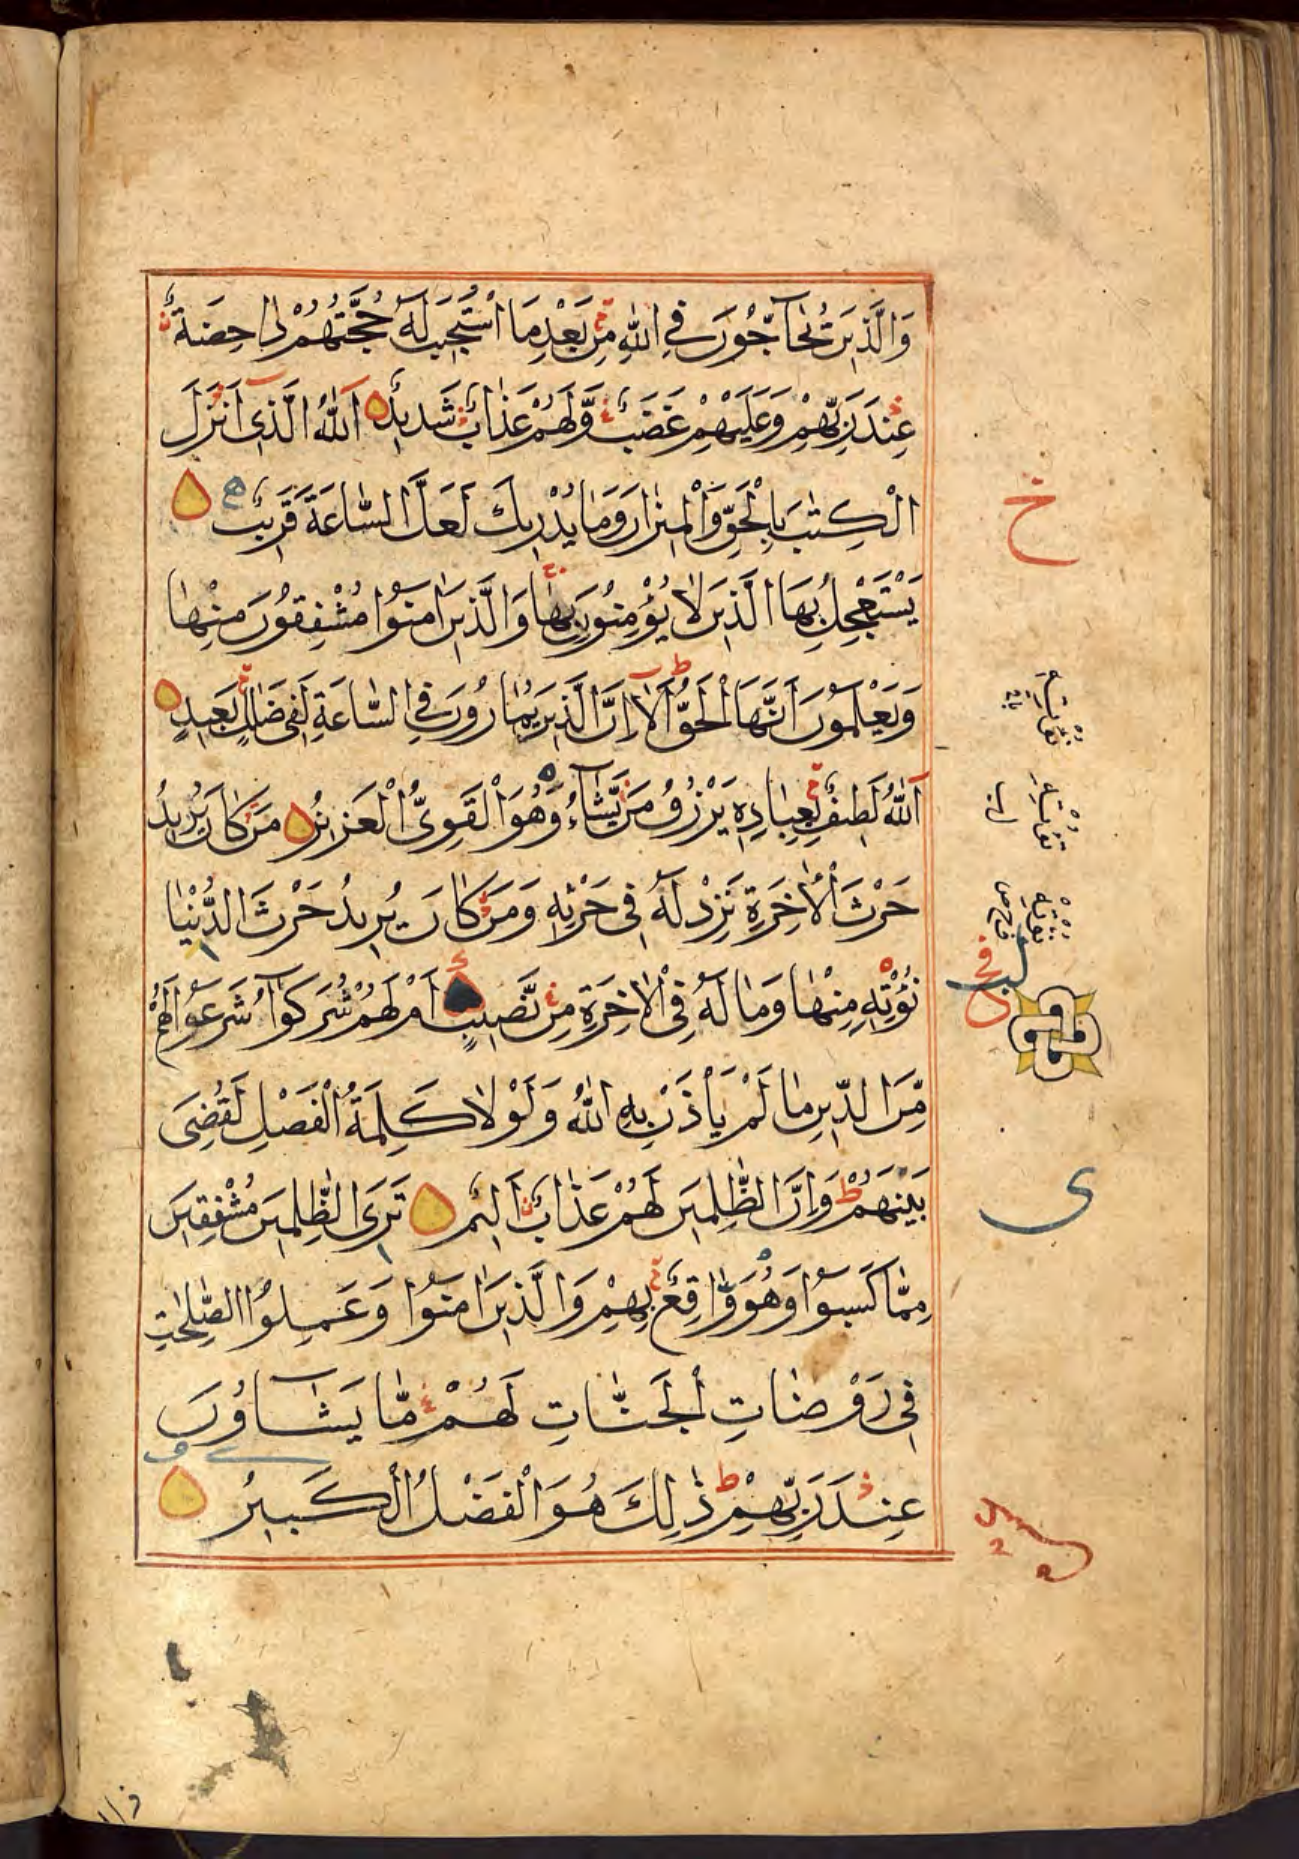 وَالَّذِينَ يُحَاجُّونَ فِي اللّٰهِ مِنْ بَعْدِ مَا اسْتُجِيبَ لَهُ حُجَّتُهُمْ دَاحِضَةٌ
عِنْدَ رَبِّهِمْ وَعَلَيْهِمْ غَضَبٌ وَّلَهُمْ عَذَابٌ شَدِيدٌ اَللّٰهُ الَّذِي اَنْزَلَ
الْكِتٰبَ بِالْحَقِّ وَالْمِيزَانَ وَمَا يُدْرِيكَ لَعَلَّ السَّاعَةَ قَرِيبٌ
يَسْتَعْجِلُ بِهَا الَّذِينَ لَا يُؤْمِنُونَ بِهَا وَالَّذِينَ اٰمَنُوا مُشْفِقُونَ مِنْهَا
وَيَعْلَمُونَ اَنَّهَا الْحَقُّ اَلَا اِنَّ الَّذِينَ يُمَارُونَ فِي السَّاعَةِ لَفِي ضَلَالٍ بَعِيدٍ
اَللّٰهُ لَطِيفٌ بِعِبَادِهِ يَرْزُقُ مَنْ يَّشَاءُ وَهُوَ الْقَوِيُّ الْعَزِيزُ مَنْ كَانَ يُرِيدُ
حَرْثَ الْاٰخِرَةِ نَزِدْ لَهُ فِي حَرْثِهِ وَمَنْ كَانَ يُرِيدُ حَرْثَ الدُّنْيَا
نُؤْتِهِ مِنْهَا وَمَا لَهُ فِي الْاٰخِرَةِ مِنْ نَّصِيبٍ اَمْ لَهُمْ شُرَكٰوا شَرَعُوا لَهُمْ
مِّنَ الدِّينِ مَا لَمْ يَأْذَنْ بِهِ اللّٰهُ وَلَوْلَا كَلِمَةُ الْفَصْلِ لَقُضِيَ
بَيْنَهُمْ وَاِنَّ الظّٰلِمِينَ لَهُمْ عَذَابٌ اَلِيمٌ تَرَى الظّٰلِمِينَ مُشْفِقِينَ
مِمَّا كَسَبُوا وَهُوَ وَاقِعٌ بِهِمْ وَالَّذِينَ اٰمَنُوا وَعَمِلُوا الصّٰلِحٰتِ
فِي رَوْضَاتِ الْجَنَّاتِ لَهُمْ مَّا يَشَاؤُنَ
عِنْدَ رَبِّهِمْ ذٰلِكَ هُوَ الْفَضْلُ الْكَبِيرُ